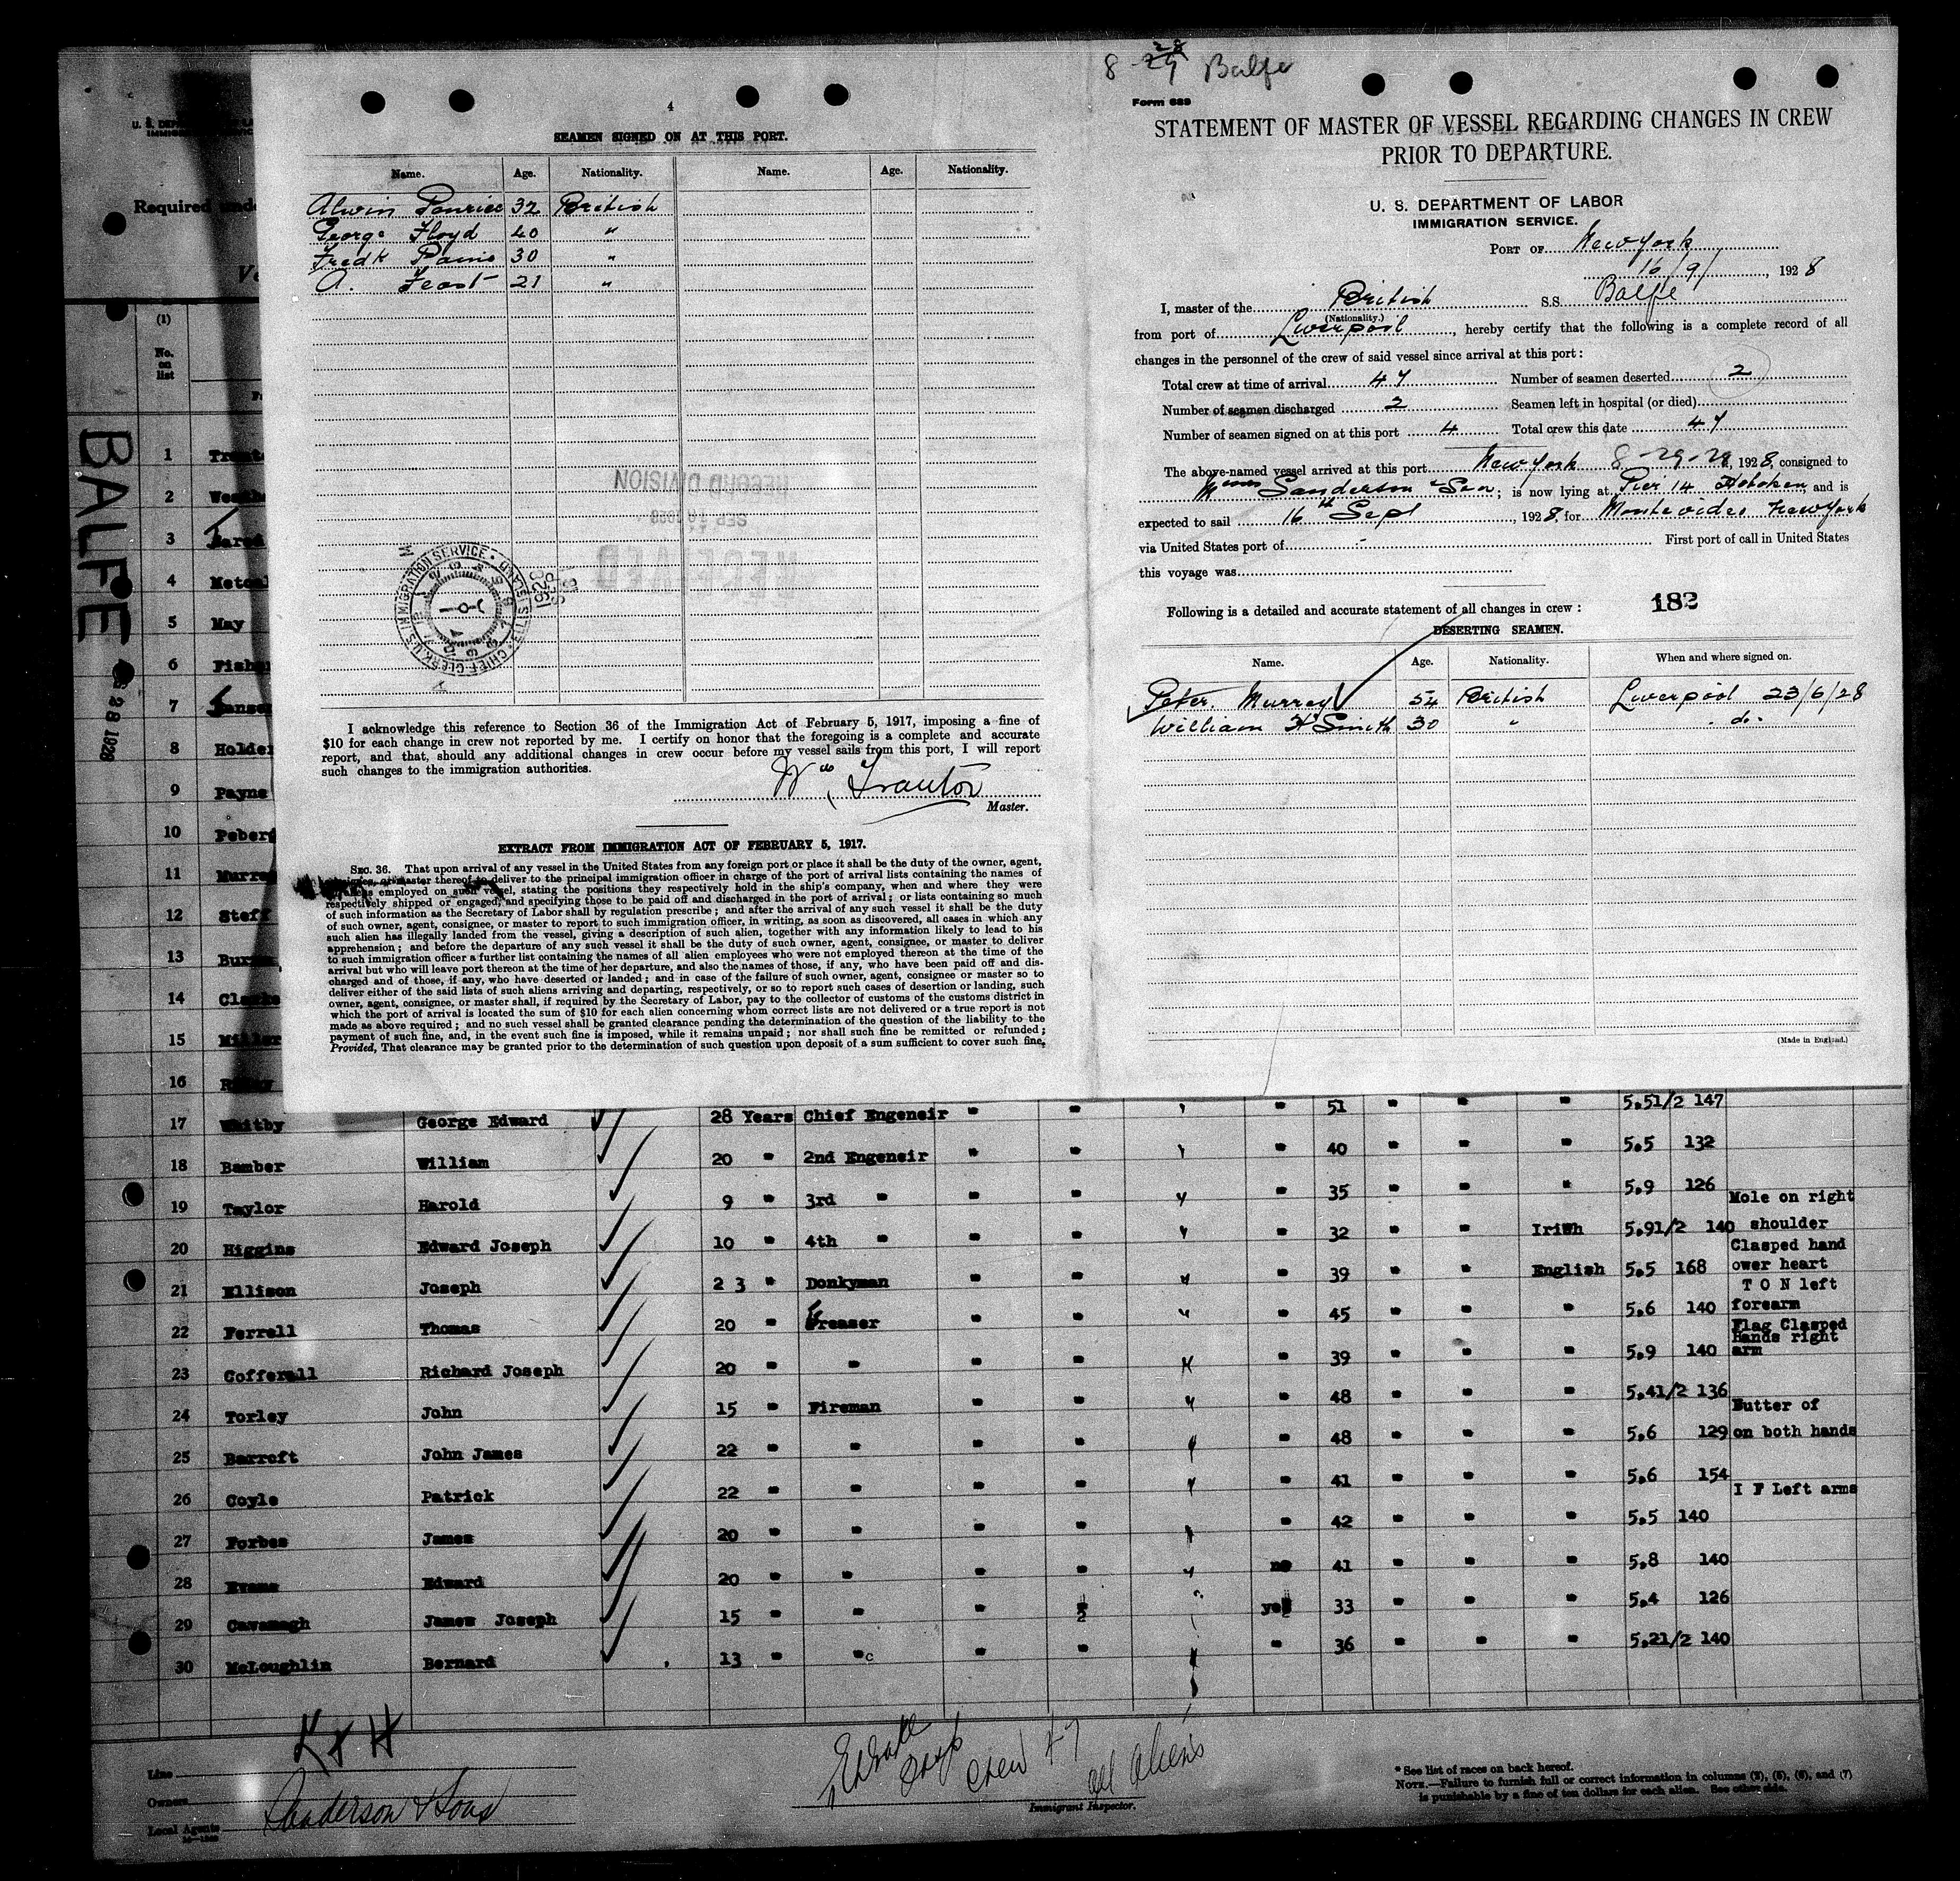 8-28 Balfe
4
SEAMEN SIGNED ON AT THIS PORT.
Name. Age. Nationality. Name. Age. Nationality.
Alwin 32 British
George Floyd 40 "
Fredk 30 "
A. Feast 21 "
RECORD DIVISION
SEP 1928
RECEIVED
CHIEF CLERK U.S. IMMIGRATION SERVICE ELLIS ISLAND
1928 SEP
I acknowledge this reference to Section 36 of the Immigration Act of February 5, 1917, imposing a fine of
$10 for each change in crew not reported by me. I certify on honor that the foregoing is a complete and accurate
report, and that, should any additional changes in crew occur before my vessel sails from this port, I will report
such changes to the immigration authorities.
Wm Trantor
Master.
EXTRACT FROM IMMIGRATION ACT OF FEBRUARY 5, 1917.
SEC. 36. That upon arrival of any vessel in the United States from any foreign port or place it shall be the duty of the owner, agent,
consignee, or master thereof to deliver to the principal immigration officer in charge of the port of arrival lists containing the names of
all aliens employed on such vessel, stating the positions they respectively hold in the ship's company, when and where they were
respectively shipped or engaged, and specifying those to be paid off and discharged in the port of arrival; or lists containing so much
of such information as the Secretary of Labor shall by regulation prescribe; and after the arrival of any such vessel it shall be the duty
of such owner, agent, consignee, or master to report to such immigration officer, in writing, as soon as discovered, all cases in which any
such alien has illegally landed from the vessel, giving a description of such alien, together with any information likely to lead to his
apprehension; and before the departure of any such vessel it shall be the duty of such owner, agent, consignee, or master to deliver
to such immigration officer a further list containing the names of all alien employees who were not employed thereon at the time of the
arrival but who will leave port thereon at the time of her departure, and also the names of those, if any, who have been paid off and dis-
charged and of those, if any, who have deserted or landed; and in case of the failure of such owner, agent, consignee or master so to
deliver either of the said lists of such aliens arriving and departing, respectively, or so to report such cases of desertion or landing, such
owner, agent, consignee, or master shall, if required by the Secretary of Labor, pay to the collector of customs of the customs district in
which the port of arrival is located the sum of $10 for each alien concerning whom correct lists are not delivered or a true report is not
made as above required; and no such vessel shall be granted clearance pending the determination of the question of the liability to the
payment of such fine, and, in the event such fine is imposed, while it remains unpaid; nor shall such fine be remitted or refunded;
Provided, That clearance may be granted prior to the determination of such question upon deposit of a sum sufficient to cover such fine,
Form 689
STATEMENT OF MASTER OF VESSEL REGARDING CHANGES IN CREW
PRIOR TO DEPARTURE.
U. S. DEPARTMENT OF LABOR
IMMIGRATION SERVICE.
PORT OF New York
16/9/, 1928
I, master of the British S.S. Balfe
(Nationality.)
from port of Liverpool, hereby certify that the following is a complete record of all
changes in the personnel of the crew of said vessel since arrival at this port:
Total crew at time of arrival 47 Number of seamen deserted 2
Number of seamen discharged 2 Seamen left in hospital (or died)
Number of seamen signed on at this port 4 Total crew this date 47
The above-named vessel arrived at this port New York 8-29-28, 1928, consigned to
Messrs Sanderson & Son; is now lying at Pier 14 Hoboken, and is
expected to sail 16th Sept, 1928, for Montevideo New York
via United States port of - First port of call in United States
this voyage was
Following is a detailed and accurate statement of all changes in crew: 182
DESERTING SEAMEN.
Name. Age. Nationality. When and where signed on.
Peter Murray 54 British Liverpool 23/6/28
William H Smith 30 " do.
(Made in England.)
BALFE
28 1928
Required unde
(1)
No. on list
1
2
3
4
5 May
6
7
8 Holde
9 Payne
10
11
12
13
14
15
16
17 Whitby George Edward 28 Years Chief Engeneir " " " " 51 " " " 5.51/2 147
18 Bamber William 20 " 2nd Engeneir " " " " 40 " " " 5.5 132
19 Taylor Harold 9 " 3rd " " " " " 35 " " " 5.9 126 Mole on right
20 Higgins Edward Joseph 10 " 4th " " " " " 32 " " Irish 5.91/2 140 shoulder
Clasped hand
21 Ellison Joseph 2 3 " Donkyman " " " " 39 " " English 5.5 168 ower heart
T O N left
22 Ferrell Thomas 20 " Greaser " " " " 45 " " " 5.6 140 forearm
Flag Clasped
Hands right
23 Cofferall Richard Joseph 20 " " " " " " 39 " " " 5.9 140 arm
24 Torley John 15 " Fireman " " " " 48 " " " 5.41/2 136
Butter of
25 Barroft John James 22 " " " " " " 48 " " " 5.6 129 on both hands
26 Coyle Patrick 22 " " " " " " 41 " " " 5.6 154
I F Left arms
27 Forbes James 20 " " " " " " 42 " " " 5.5 140
28 Evans Edward 20 " " " " " no 41 " " " 5.8 140
29 Cavanagh James Joseph 15 " " " 2 yes 33 " " " 5.4 126
30 McLoughlin Bernard 13 " " " " " 36 " " " 5.21/2 140
K & H
Line
Owners
Local Agents Sanderson & Sons
Crew 47
all Aliens
Immigrant Inspector.
* See list of races on back hereof.
NOTE.—Failure to furnish full or correct information in columns (2), (5), (6), and (7)
is punishable by a fine of ten dollars for each alien. See other side.